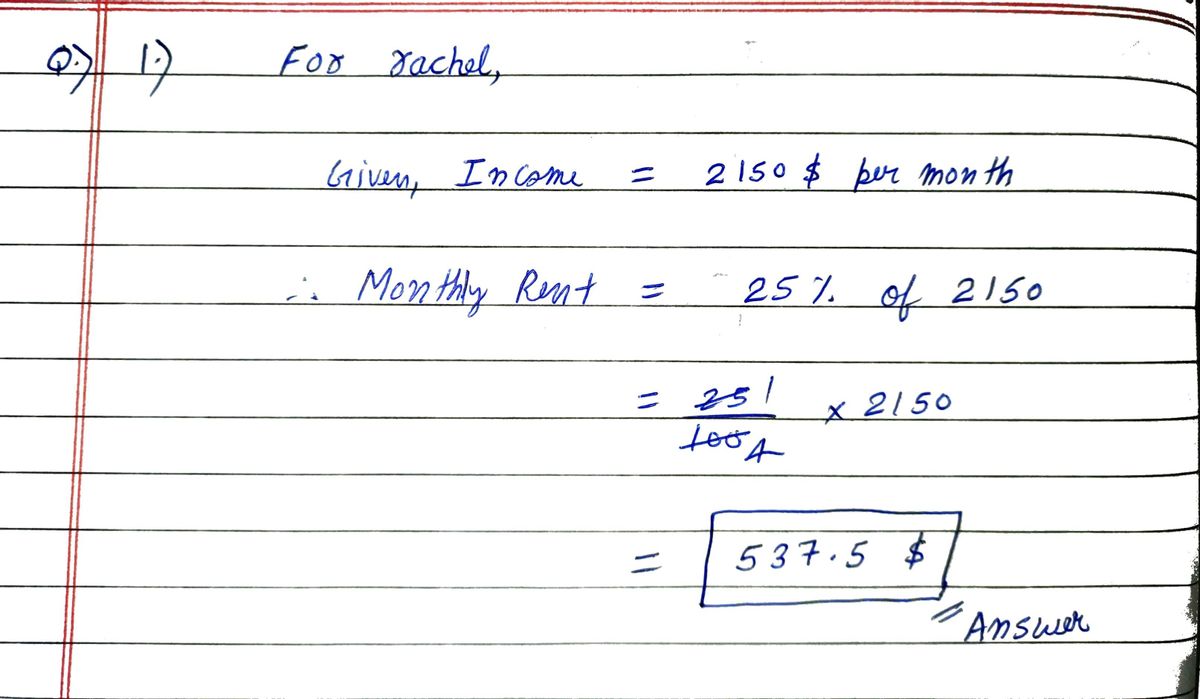 Q.) 1.) For rachel,
Given, Income = 2150 $ per month
∴ Monthly Rent = 25 % of 2150
= 25 1 / 100 4 × 2150
= 537.5 $
Answer